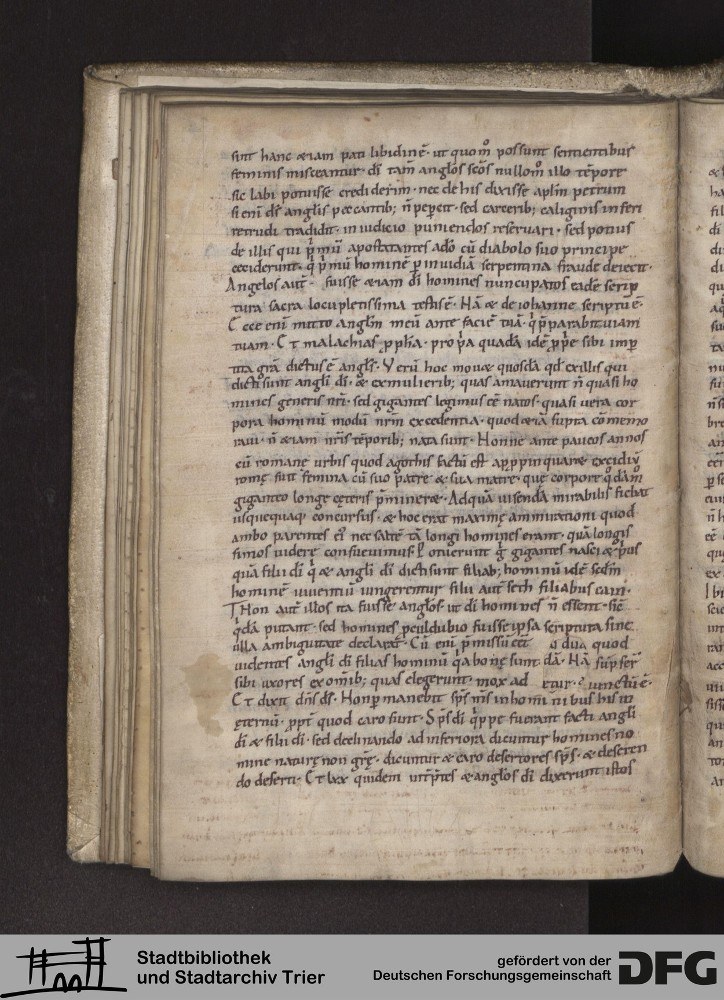 sunt hanc etiam pati libidinē · ut quom̊ possunt sentientibus
feminis misceantur · di tam̄ angłos scōs nullom̊ illo tēpore
sic labi potuisse crediderim · nec de his dixisse aplm̄ petrum
si eni ds̄ angłis peccantib; n̄ pepcit · sed carcerib; caliginis inferi
retrudi tradidit · in iudicio puniendos reservari · sed potius
de illis qui p̊mū apostatantes a dō cū diabolo suo principe
ceciderunt · q̊ p̊mū hominē p invidiā serpentina fraude deiecit ·
Angelos aut̄ · fuisse etiam di homines nuncupatos eadē scrip
tura sacra locupletissima testis ē · Nā & de iohanne scriptū ē ·
Ecce eni mitto angłm meū ante faciē tuā · q̊ pparabit viam
tuam · Et malachias ppha · propa quadā idē pp̊e sibi imp
tita grā dictus ē angłs · Verū hoc movet quosdā qd ex illis qui
dicti sunt angłi di · & ex mulierib; quas amaverunt n̄ quasi ho
mines generis nri · sed gigantes legimus eē natos · quasi vero cor
pora hominū modū nrm excedentia · quod etiā supra cōmemo
ravi · n̄ etiam nris tēporib; nata sunt · Nonne ante paucos annos
cū romane urbis quod a gothis factū est appinquaret excidiū
romę fuit femina cū suo patre & sua matre · que corpore q̊dām̊
giganteo longe ceteris p̊mineret · Ad quā visendā mirabilis fiebat
usquequaq; concursus · & hoc erat maxime ammirationi quod
ambo parentes ei nec saltē tā longi homines erant · quā longis
simos videre consuevimus · Potuerunt g̊ gigantes nasci & p̊us
quā filii di q̊ & angłi di dicti sunt filiab; hominū idē sedm̄
hominē viventiū iungerentur filii aut̄ seth filiabus cain ·
Non aut̄ illos ita fuisse angłos · ut di homines n̄ essent · sic
q̊dā putant · sed homines pculdubio fuisse ipsa scriptura sine
ulla ambiguitate declarat̄ · Cū eni p̊missū eēt quod
videntes angłi di filias hominū q̊a bonę sunt
sibi uxores ex omīb; quas elegerunt · mox ad
Et dixit dn̄s ds̄ · Non pmanebit sps̄ m̄s in homi ni bus his in
eternū · ppt̄ quod caro sunt · Sps̄ di q̊ppe fuerant facti angłi
di & filii di · sed declinando ad inferiora dicuntur homines no
mine naturę non grę · dicuntur & caro desertores sps̄ · & deseren
do deserti · Et lxx quidem int̄p̊tes & angłos di dixerunt istos
Stadtbibliothek
und Stadtarchiv Trier
gefördert von der
Deutschen Forschungsgemeinschaft
DFG